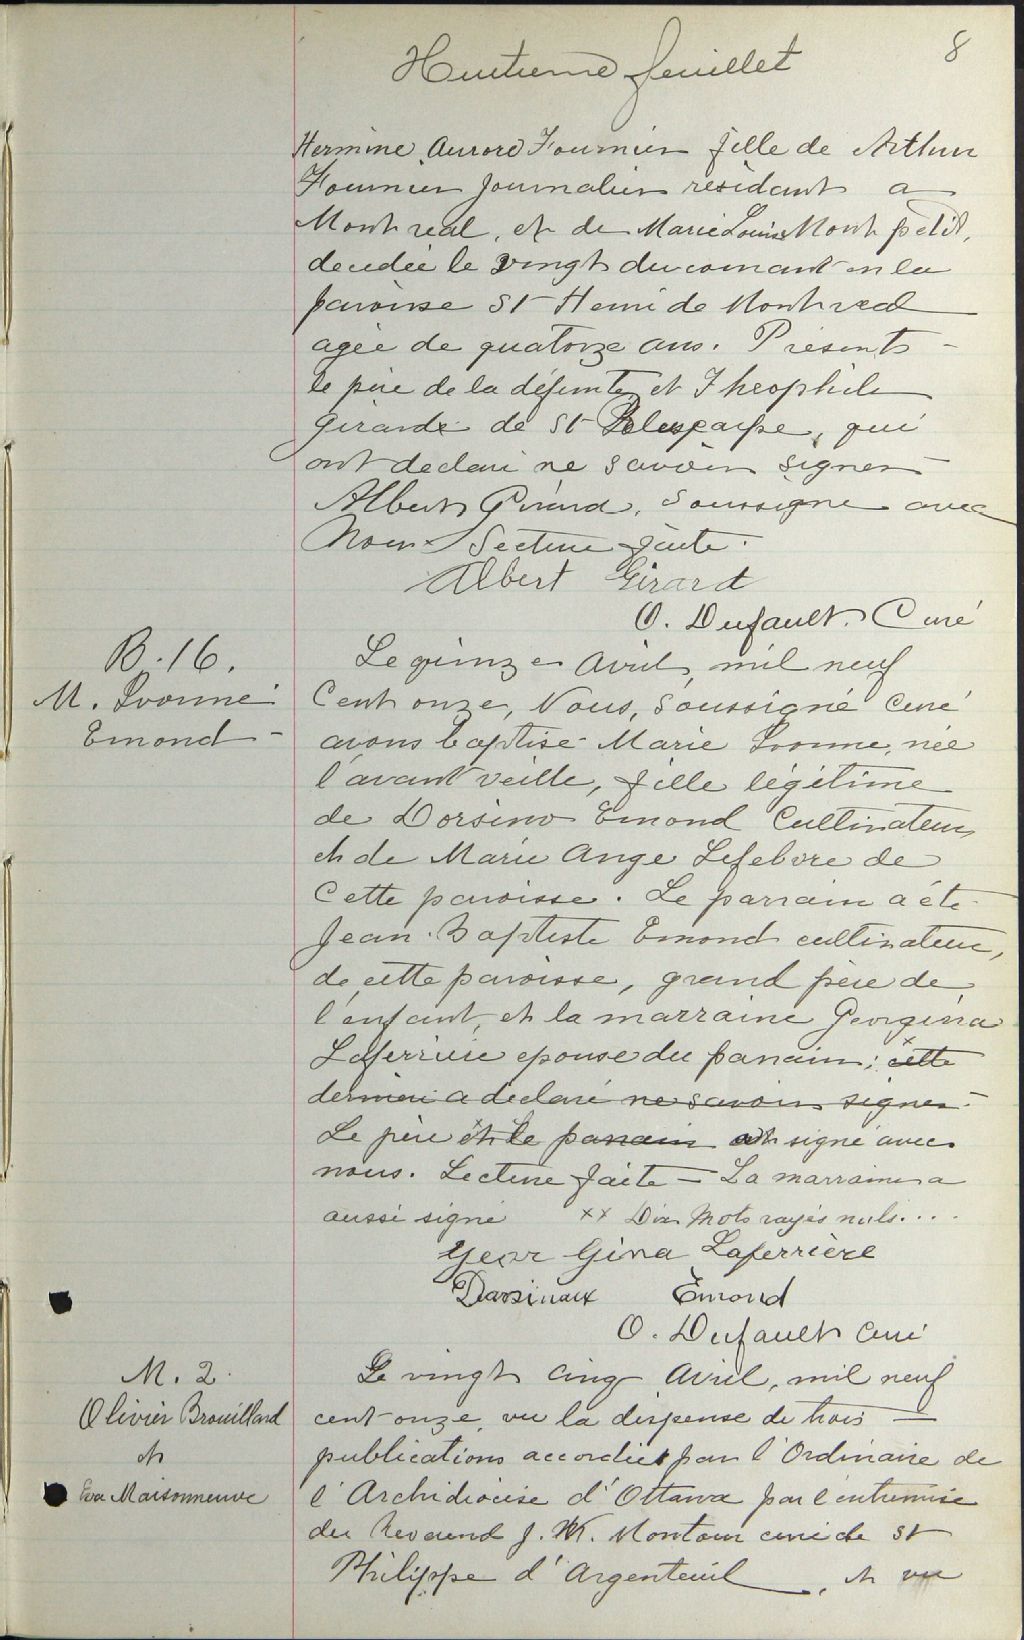 Huitieme feuillet
8
Hermine Aurore Fournier fille de Arthur
Fournier journalier résidant a
Montreal, et de Marie Louise Montpetit,
decedée le vingt du courant en la
paroisse St Henri de Montreal
agée de quatorze ans. Présents
le père de la défunte, et Theophile
Girard de St Polycarpe, qui
ont declaré ne savoir signer
Albert Girard, soussigné avec
Nous. Lecture faite.
Albert Girard
O. Dufault. Curé
B. 16.
M. Ivonne
Emond
Le quinze Avril, mil neuf
Cent onze, Nous, Soussigné Curé
avons baptisé Marie Ivonne, née
l'avant veille, fille légitime
de Dorsino Emond Cultivateur
et de Marie Ange Lefebvre de
Cette paroisse. Le parrain a été
Jean-Baptiste Emond cultivateur,
de cette paroisse, grand père de
l'enfant, et la marraine Georgina
Laferrière epouse du parrain; cette
dernière a déclaré ne savoir signer.
Le père et le parrain ont signé avec
nous. Lecture faite - La marraine a
aussi signé xx Dix Mots rayés nuls....
Geor Gina Laferrière
Darsinaux Émond
O. Dufault Curé
M. 2.
Olivier Brouillard
et
Eva Maisonneuve
Le vingt cinq Avril, mil neuf
cent onze, vu la dispense de trois
publications accordée par l'Ordinaire de
l'Archidiocèse d'Ottawa par l'entremise
du Reverend J. K. Montour curé de St
Philippe d'Argenteuil, et vu